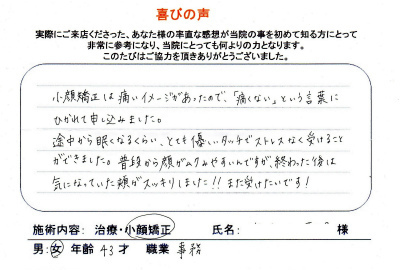 喜びの声
実際にご来店くださった、あなた様の率直な感想が当院の事を初めて知る方にとって
非常に参考になり、当院にとっても何よりの力となります。
このたびはご協力を頂きありがとうございました。
小顔矯正は痛いイメージがあったので、「痛くない」という言葉に
ひかれて申し込みました。
途中から眠くなるくらい、とても優しいタッチでストレスなく受けること
ができました。普段から顔がムクみやすいんですが、終わった後は
気になっていた頬がスッキリしました!!また受けたいです!
施術内容: 治療・小顔矯正 氏名: 様
男・女 年齢 43才 職業 事務